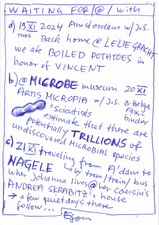 WAITING FOR/@/with
a) 19 XI 2024 Amsterdam w/J.S.
tues Back home @ LELIEGRACHT
we ate BOILED POTATOES in
honor of VINCENT
b) @ MICROBE museum 20 XI
ARTIS MICROPIA w/J.S. & Helga
Scientists
estimate that there are
Potentially TRILLIONS of
undiscovered microbial species
c) 21 XI traveling from A'dam to
NAGELE by tram/train/bus
where Johanna lives @ her cousin's
ANDREA SKRABITZ's house
→ a few quiet days there
follow...